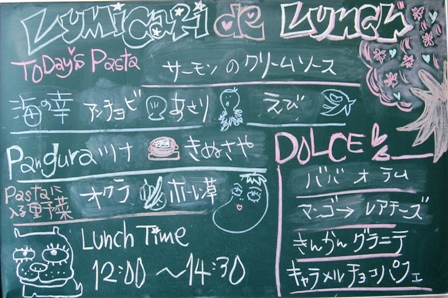 LUMICARI de LUNCH
TODay's Pasta
サーモンのクリームソース
海の幸 アンチョビ あさり えび
Panguraツナ きぬさや
Pastaに入る野菜 オクラ ホーレン草
Lunch Time
12:00 〜14:30
DOLCE
ババ オ ラム
マンゴー レアチーズ
きんかん グラニテ
キャラメルチョコパフェ